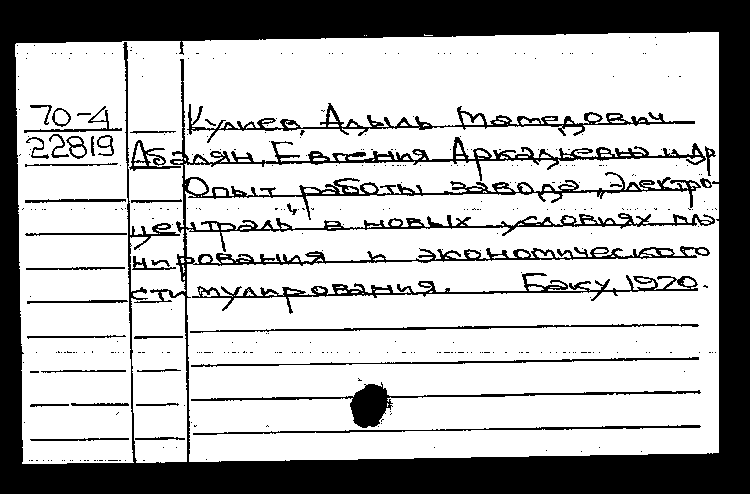 70-4 Кулиев, Адыль Мамедович
22819 Абалян, Евгения Аркадьевна и др
Опыт работы завода „Электро-
централь" в новых условиях пла-
нирования и экономического
стимулирования. Баку, 1970.